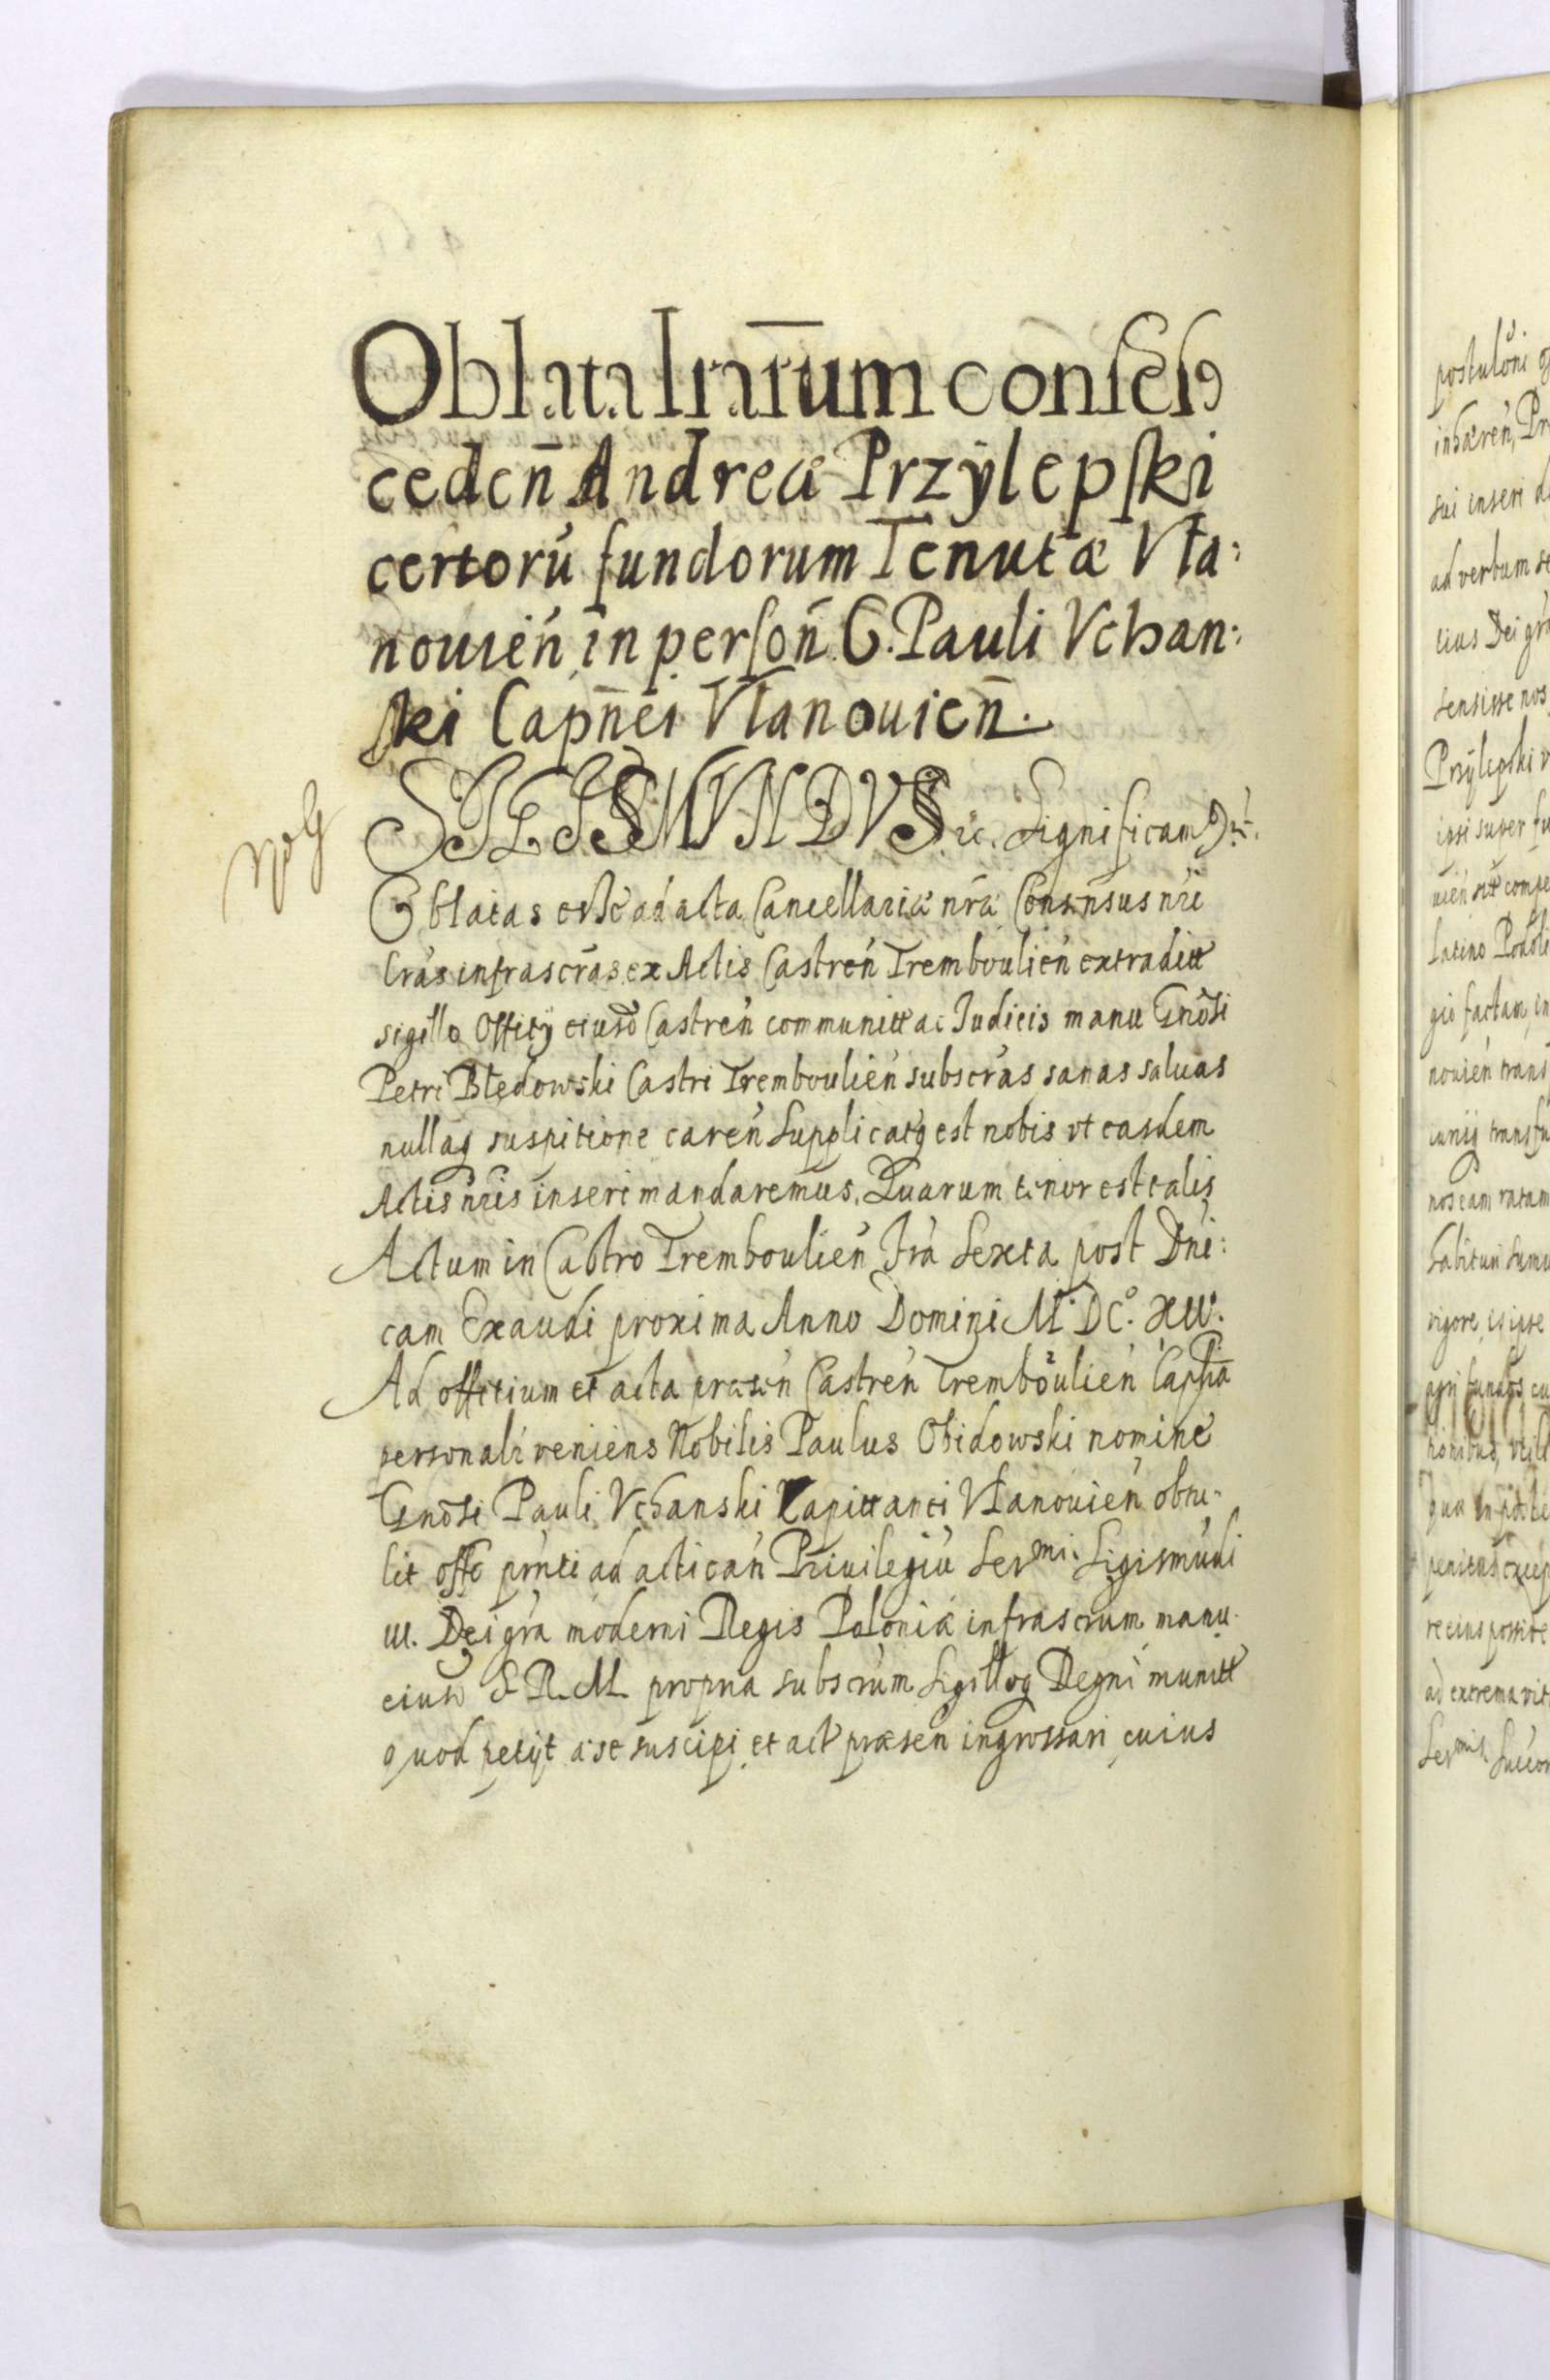 Oblata lrarum consens9
cedcn Andreæ Przÿlepski
certorú fundorum Tenutæ Vła:
nouień in person G. Pauli Vchan:
ski Capnei Vłanouien.
SIGISMVNDVS ic. Significam9
Oblatas esse ad acta Cancellariæ nræ Consensus nri
lras infrascras ex Actis Castren Tremboulien extraditt
sigillo Offitÿ eiusd Castren communitt ac Judicis manu Gnosi
Petri Błędowski Castri Tremboulien subscras sanas saluas
nullaq suspitione caren Supplicatq est nobis vt easdem
Actis nris inseri mandaremus. Quarum tenor est talis
Actum in Castro Tremboulien fra Sexta post Dni:
cam Exaudi proxima Anno Domini M. DC.º XIV.
Ad offitium et acta præsen Castren Tremboulien Caplia
personalr veniens Nobilis Paulus Obidowski nomine
Gnosi Pauli Vchanski Capittanei Vłanouien obtu-
lit offo prnti ad actican Priuilegiu Sermi Sigismudi
III. Dei gra moderni Regis Poloniæ infrascrum manu
eiusd S. R. M. propria subscrum Sigilloq Regni munitt
quod petÿt a se suscipi et act præsen ingrossari cuius
postuloni
inhæren, Pr
sui inseri d
ad verbum se
lius Dei gra
sensisse nos
Przÿlepski v
ipsi super fu
uien sitt compe
latino Podoli
gio factam, in
nouien trans
transfu
nos eam ratam
habituri sumu
vigore, is ipse
agri fundos cu
penitus excep
re eius possite
ad extrema vit
Sermis Succor